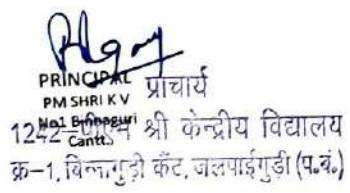 PRINCIPAL
PM SHRI K V
No1 Binnaguri
Cantt.
प्राचार्य
1242-पीएम श्री केन्द्रीय विद्यालय
क्र-1, बिन्नागुड़ी कैंट, जलपाईगुड़ी (प.बं.)